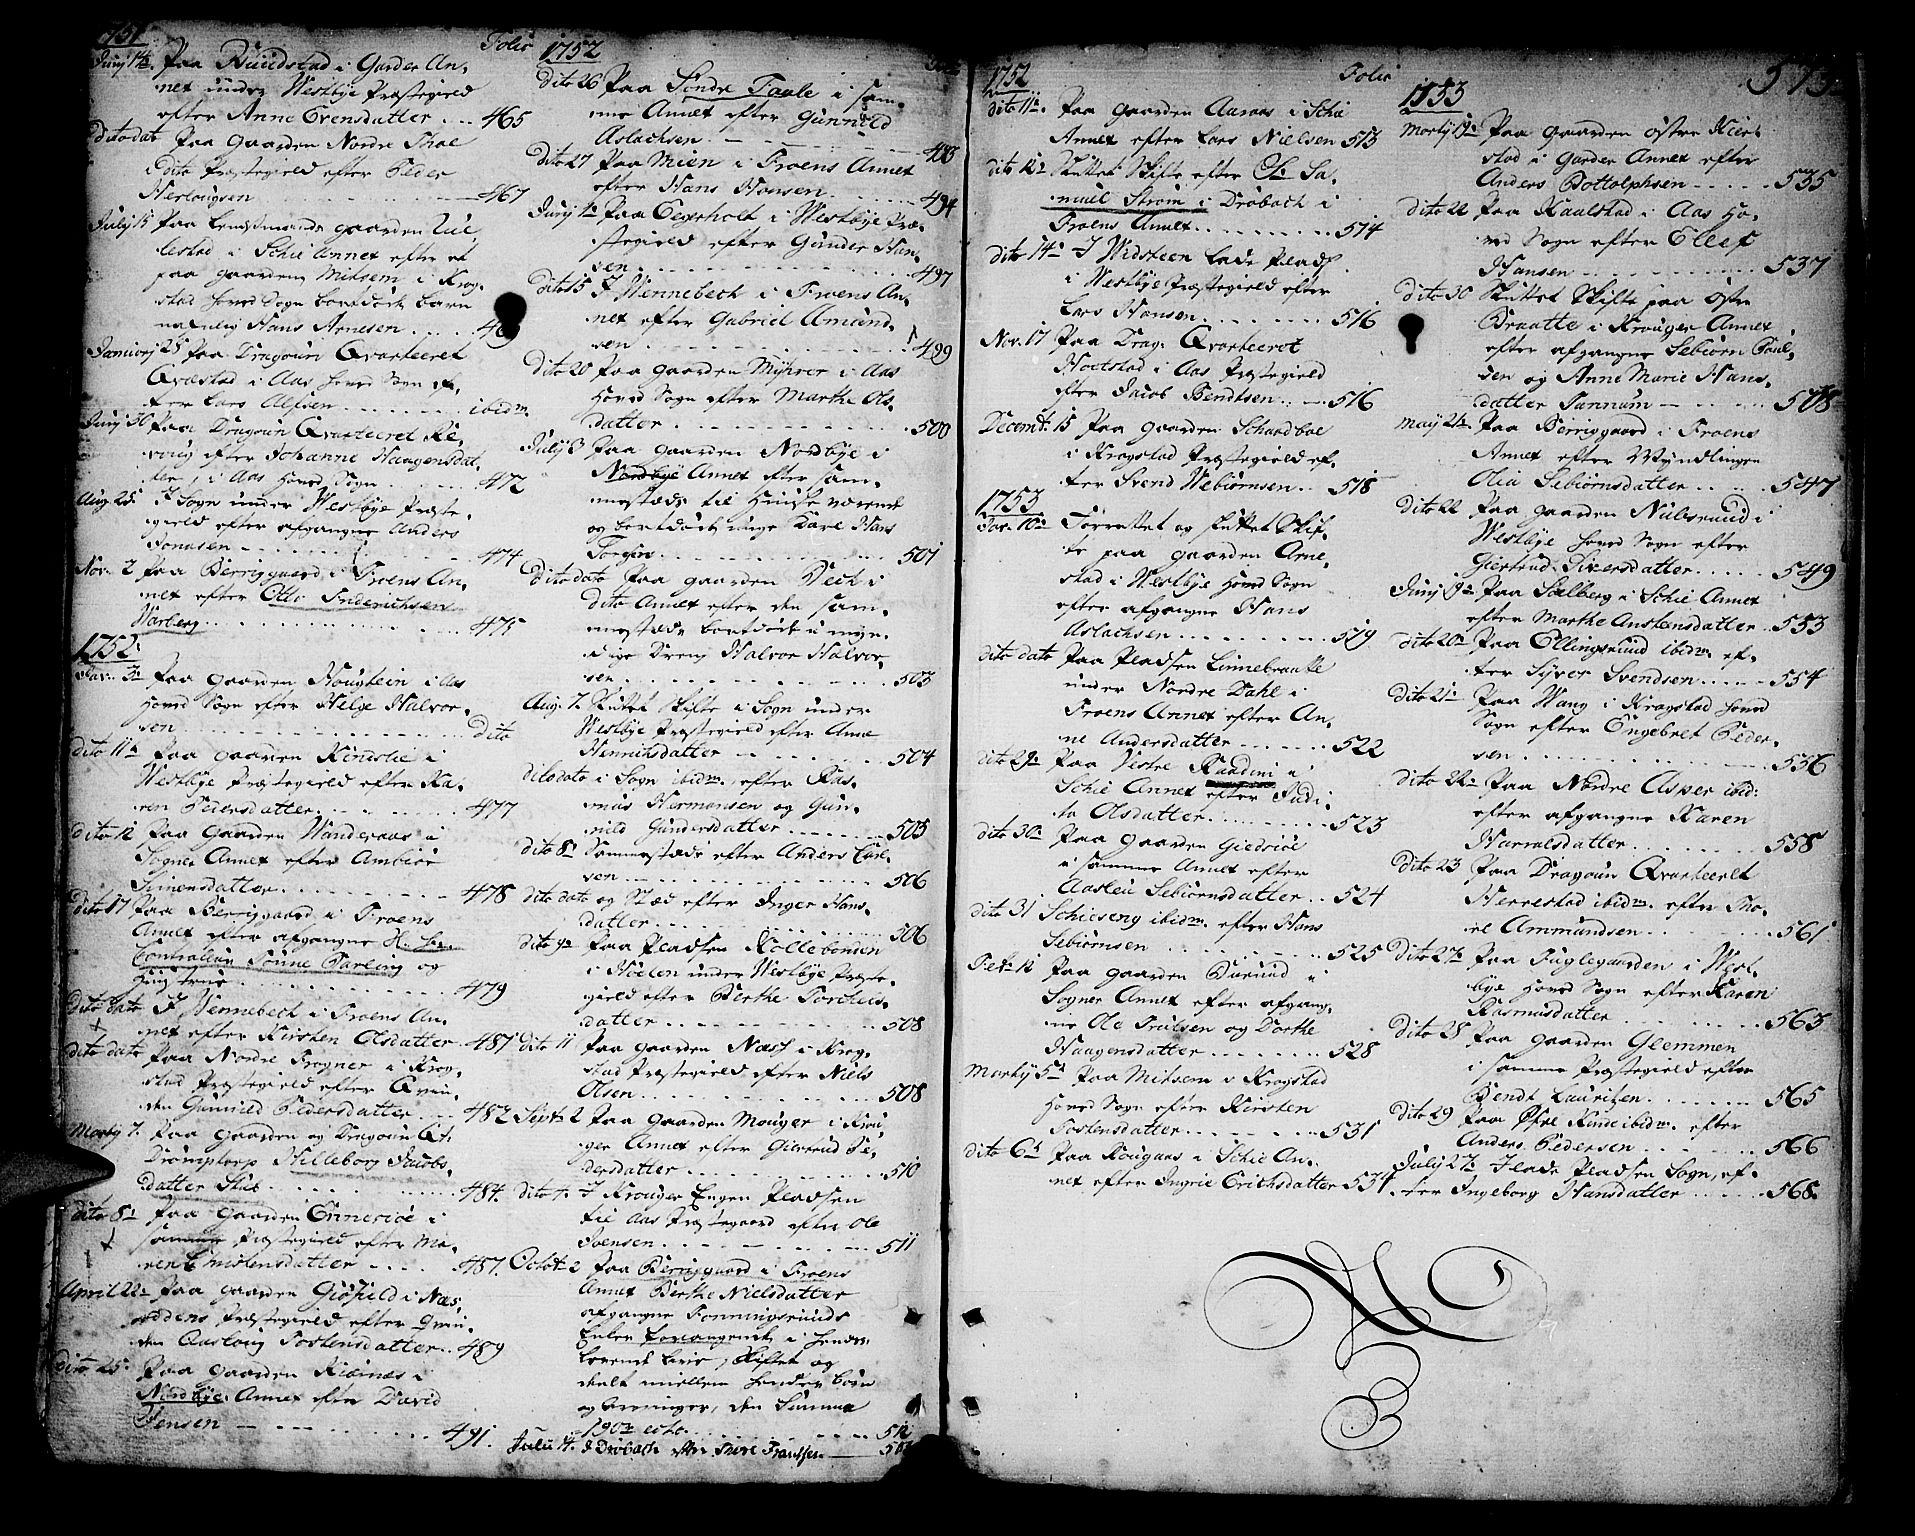 1751 Folio
Junj 14. Paa Ruudstad i Garder An-
nex under Westbye Præstegield
efter Anne Evensdatter ... 465
dito dat Paa gaarden Nordre Thoe
dito Præstegield efter Peder
Herlougsen 467
Julj 15 Paa Lensmands gaarden
i Schie Annex efter et
paa gaarden Mitsem i Krog-
stad Hoved Sogn bortdøde barn
nafnlig Hans Arnesen
Januarj 25 Paa Dragoun Qvarteeret
Qvæstad i Aas Hoved Sogn ef-
ter Lars Alfsen ibidm.
Junj 30 Paa Dragoun Qvarteeret
efter Johanne Haagensdat-
ter, i Aas Hoved Sogn 472
Aug. 25 I Sogn under Westbye Præste-
gield efter afgangne Anders
Jonasen 474
Nov. 2 Paa Berriggaard i Froens An-
nex efter Otto Friderichsen
Warberg 475
1752.
Jan. 3 Paa gaarden Hougstein i Aas
Hoved Sogn efter Helge Halvor-
sen dito
dito 11 Paa gaarden Kindslie i
Westbye Præstegield efter Ka-
ren Pedersdatter 477
dito 12 Paa gaarden Wanderaas i
Sogner Annex efter Ambiør
Simensdatter 478
dito 17 Paa Berriggaard i Froens
Annex efter afgangne Hr.
Contraleur Sønne Parling og
Hustrue 479
dito dato I Wennebech i Froens An-
nex efter Kirsten Olsdatter 481
dito dato Paa Nordre Frogner i Krog-
stad Præstegield efter Qvin-
den Gunnild Pedersdatter 482
Martij 7. Paa gaarden og Dragoun
Drømptorp Hilleborg Jacobs-
datter Stus 484
dito 8 Paa gaarden Ennersiøe i
samme Præstegield efter Ma-
ren Christensdatter 487
April 22 Paa gaarden Giøfield i Næs-
oddens Præstegield efter Qvin-
den Aaslaug Tostensdatter 489
dito 25 Paa gaarden Ribinæs i
Nordbye Annex efter David
Jensen 491.
1752
dito 26 Paa Søndre Taale i sam-
me Annex efter Gunnild
Aslachsen 493
dito 27 Paa Mien i Froens Annex
efter Hans Hansen 494
Junj 1 Paa Egerholt i Westbye Præ-
stegield efter Gunder Han-
sen 497
dito 15 I Wennebech i Froens An-
nex efter Gabriel Amund-
sen 499
dito 20 Paa gaarden Myhrer i Aas
Hoved Sogn efter Marthe Ols-
datter 500
Julj 3 Paa gaarden Nordbye i
Nordbye Annex efter sam-
mestæds til Huuse værende
og bortdøde unge Karl Hans
501
dito dato Paa gaarden Dech i
dito Annex efter den sam-
mestæds bortdøde umyn-
dige Dreng Halvor Halvor-
sen 503
Aug. 7. Sluttet Skifte i Sogn under
Westbye Præstegield efter Anne
Henrichsdatter 504
dito dato i Sogn ibidm. efter Ras-
mus Harmansen og Gun-
nild Gundersdatter 505
dito 8 Sammestæds efter Anders Carl-
sen 506
dito dato og Stæd efter Inger Hans-
datter 506
dito 9 Paa Pladsen Kollebonden
i Hølen under Westbye Præste-
gield efter Berthe Torchels-
datter 508
dito 11 Paa gaarden Næss i Krog-
stad Præstegield efter Niels
Olsen 508
Septr. 2 Paa gaarden Mouger i Krou-
ger Annex efter Giertrud Pe-
dersdatter 510
dito 4. I Krouger Engen Pladsen
til Aas Præstegaard efter Ole
Svensen 511
Octobr. 2 Paa Berriggaard i Froens
Annex Berthe Nielsdatter
afgangne Fonningsrunds
Enke forsamgenet i hendes
levende Live, skiftet og
deelt imellem hendes børn
og arvinger, den Summa
190 rd 512
Julij 4. I Drøbach efter Thore Frantsen 50
1752 Folio 573
dito 11 Paa gaarden Aaraas i Schie
Annex efter Lars Nielsen 513
dito 12 Sluttet Skifte efter Sr. Sa-
muel Strøm i Drøbach i
Froens Annex 514
dito 14 I Widsteen Lade Pladss
i Westbye Præstegield efter
Lars Hansen 516
Nov. 17 Paa Drag: Qvarteeret
Holstad i Aas Præstegield
efter Jacob Bendtsen 516
Decembr. 15 Paa gaarden Schaadboe
i Kragstad Præstegield ef-
ter Svend Webiørnsen 518
1753
Jan. 10 Forrettet og sluttet Skif-
te paa gaarden Arne-
stad i Westbye Hoved Sogn
efter afgangne Hans
Aslachsen 519
dito dato Paa Pladsen Linnebraatte
under Nordre Dahl i
Froens Annex efter An-
ne Andersdatter 522
dito 29 Paa Vestre Raadim i
Schie Annex efter Judi-
ta Olsdatter 523
dito 30 Paa gaarden Giedsiøe
i samme Annex efter
Aasleu Sebiørnsdatter 524
dito 31 Schieseng ibidm. efter Hans
Sebiørnsen 525
Febr. 12 Paa gaarden Buruud i
Sogner Annex efter afgang-
ne Ole Trulsen og Dorthe
Haagensdatter 528
Martij 5 Paa Mitsem i Kragstad
Hoved Sogn efter Kirsten
Tostensdatter 531
dito 6 Paa Kougaas i Schie An-
nex efter Ingrie Erichsdatter 531.
1753
Martij 19 Paa gaarden Østre Kier-
stad i Garder Annex efter
Anders Bottolphsen 535
dito 22 Paa Kaalstad i Aas Ho-
ved Sogn efter Elef
Hansen 537
dito 30 Sluttet Skifte paa Østre
Braatte i Krouger Annex
efter afgangne Sebiørn Poul-
sen og Anne Marie Hans-
datter Tannum
May 21 Paa Berriggaard i Froens
Annex efter Myndlingen
Olia Sebiørnsdatter 547
dito 22 Paa gaarden Nubsruud i
Westbye Hoved Sogn efter
Giertrud Siversdatter 549
Junj 19 Paa Solberg i Schie Annex
efter Marthe Anstensdatter 553
dito 20 Paa Ellingsruud ibidm. ef-
ter Syver Svendsen 554
dito 21 Paa Wang i Kragstad Hoved
Sogn efter Engebret Peder-
sen 556
dito 22 Paa Nordre Asper ibid:
efter afgangne Karen
Harvalsdatter 558
dito 23 Paa Dragoun Qvarteeret
Herrestad ibidm. efter Tho-
re Ammundsen 561
dito 27 Paa Fuglegaarden i West-
bye Hoved Sogn efter Karen
Rasmusdatter 563
dito 28 Paa gaarden Glemmen
i samme Præstegield efter
Bendt Lauritzen 565
dito 29 Paa Øfre Rinde ibidm. efter
Anders Pedersen 566
Julij 27 I Lade Pladsen Sogn, ef-
ter Ingeborg Hansdatter 568.